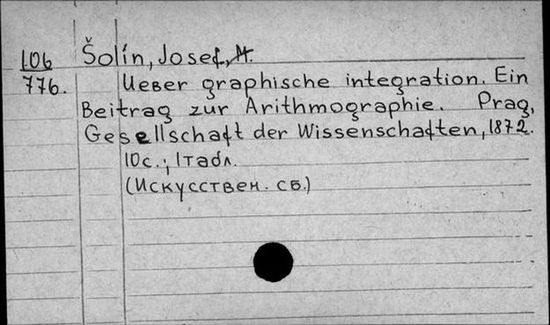 106 Šolín, Josef, M.
776. Ueber graphische integration. Ein
Beitrag zur Arithmographie. Prag,
Gesellschaft der Wissenschaften, 1872.
10с.; 1табл.
(Искусствен. сб.)